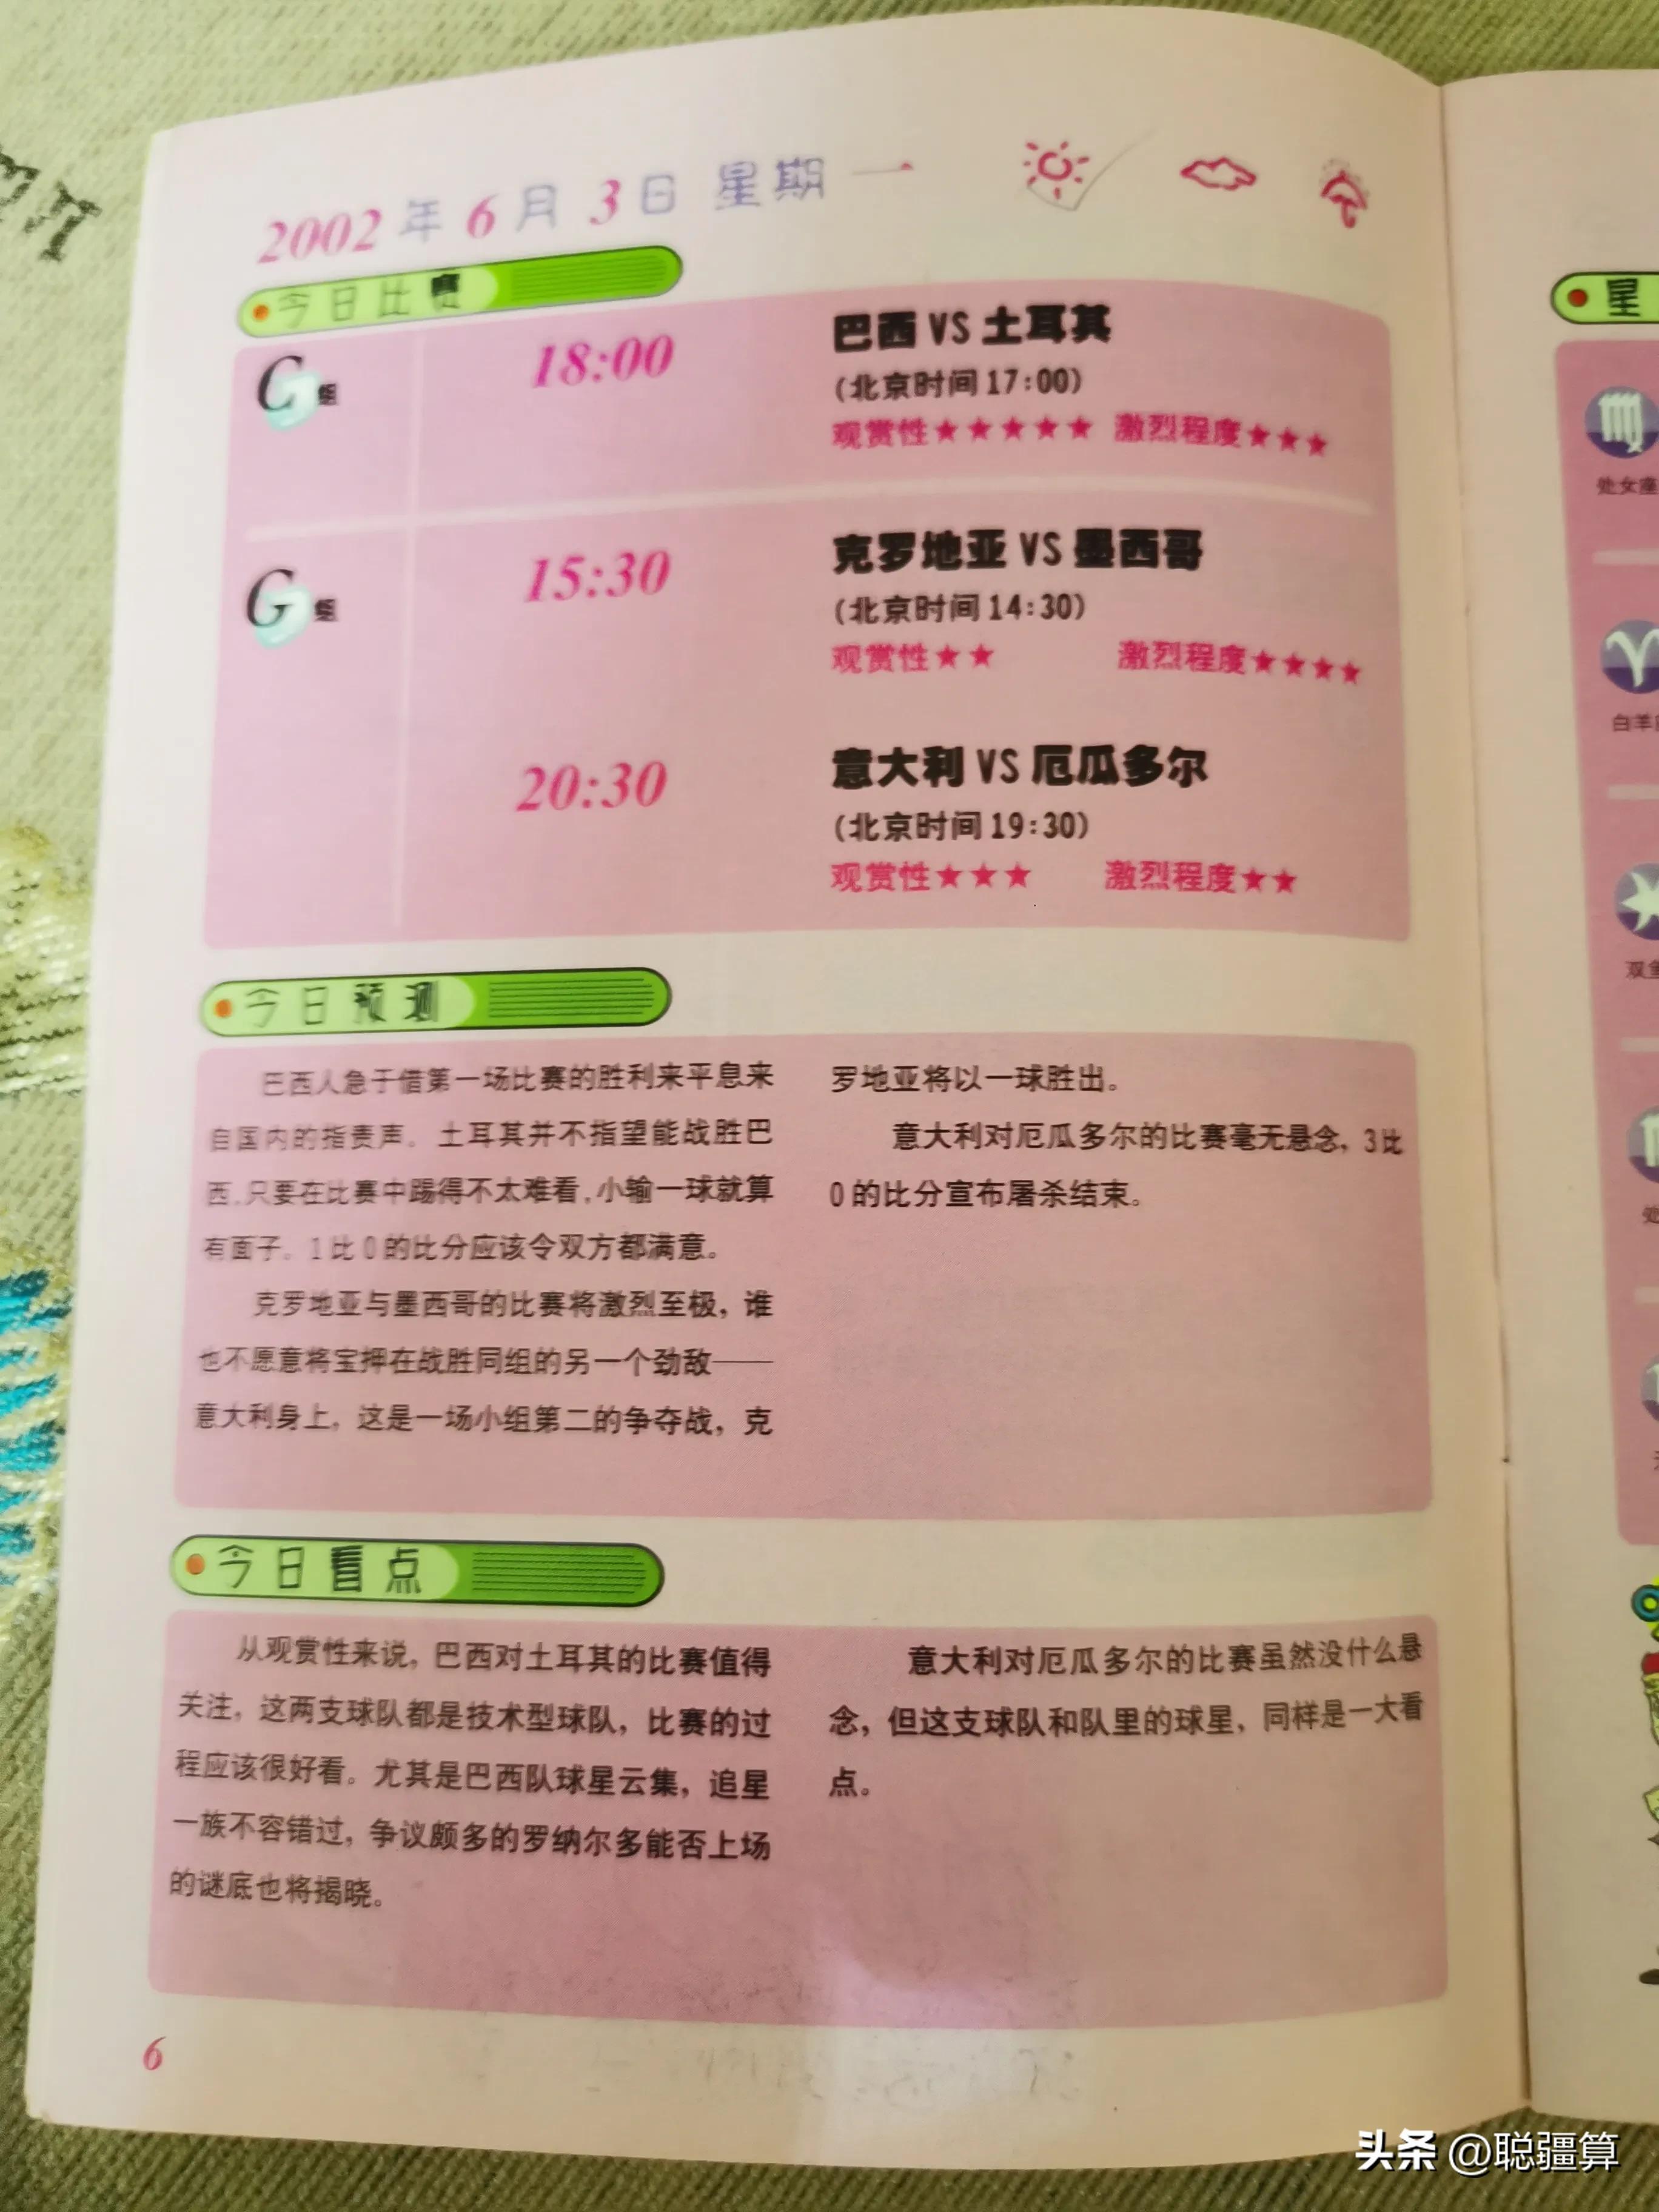 2002年6月3日 星期一
今日比赛
C组
18:00
巴西 VS 土耳其
(北京时间17:00)
观赏性★★★★★ 激烈程度★★★
G组
15:30
克罗地亚 VS 墨西哥
(北京时间14:30)
观赏性★★ 激烈程度★★★★
20:30
意大利 VS 厄瓜多尔
(北京时间19:30)
观赏性★★★ 激烈程度★★
今日预测
巴西人急于借第一场比赛的胜利来平息来
自国内的指责声。土耳其并不指望能战胜巴
西,只要在比赛中踢得不太难看,小输一球就算
有面子。1比0的比分应该令双方都满意。
克罗地亚与墨西哥的比赛将激烈至极，谁
也不愿意将宝押在战胜同组的另一个劲敌——
意大利身上，这是一场小组第二的争夺战，克
罗地亚将以一球胜出。
意大利对厄瓜多尔的比赛毫无悬念，3比
0的比分宣布屠杀结束。
今日看点
从观赏性来说，巴西对土耳其的比赛值得
关注，这两支球队都是技术型球队，比赛的过
程应该很好看。尤其是巴西队球星云集，追星
一族不容错过，争议颇多的罗纳尔多能否上场
的谜底也将揭晓。
意大利对厄瓜多尔的比赛虽然没什么悬
念，但这支球队和队里的球星，同样是一大看
点。
6
星
处女座
白羊
双鱼
处
头条 @聪疆算